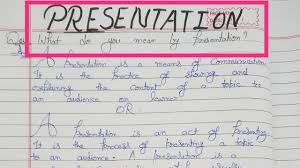 PRESENTATION
Ques What do you mean by Presentation?
A Presentation is a means of Communication.
It is the Practice of showing and
explaining the content of a topic to
an audience or learner.
OR
A Presentation is an act of Presenting.
It is the Process of presenting a topic
to an audience. A Presentation is